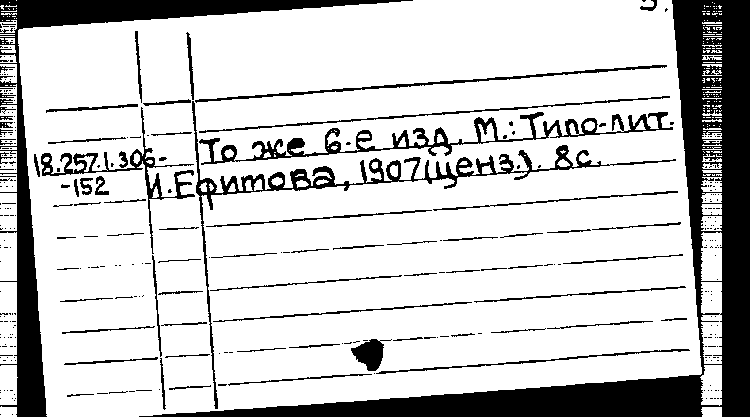 3.
18.257.1.306- То же 6-е изд. М.: Типо-лит.
-152 И. Ефитова, 1907(ценз.). 8с.